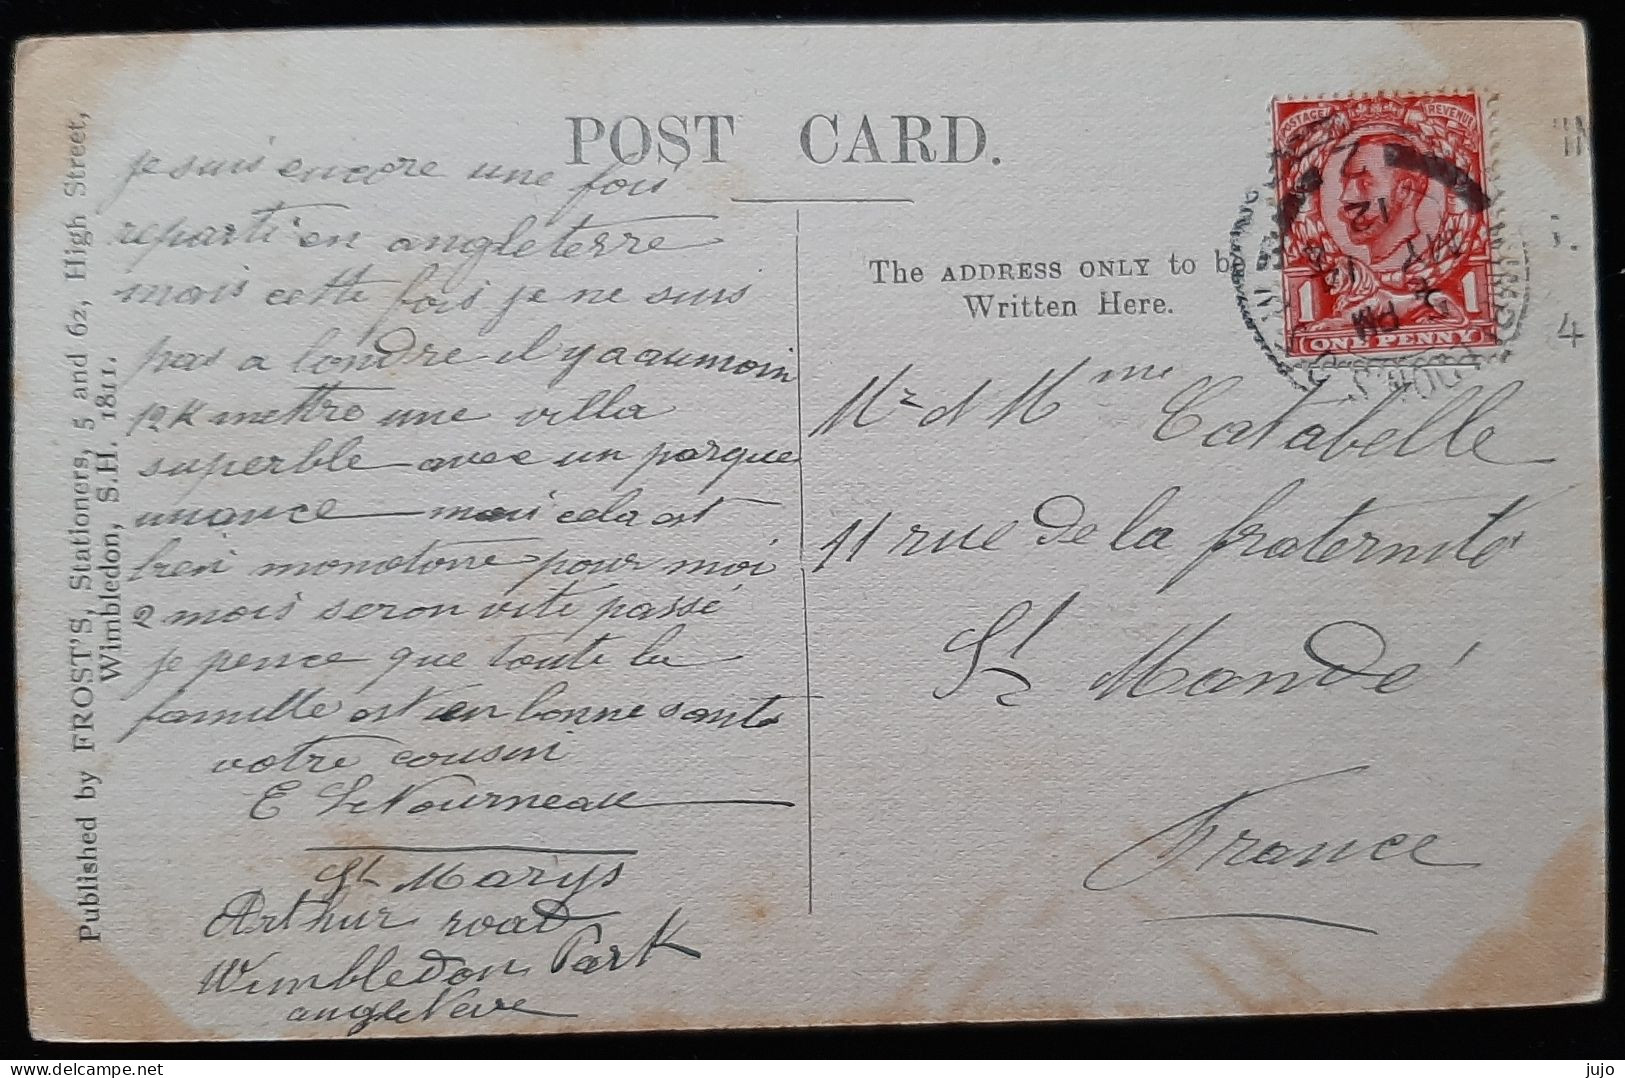 POST CARD.
Published by FROST'S, Stationers, 5 and 62, High Street,
Wimbledon, S.H. 1811.
je suis encore une fois
reparti en angleterre
mais cette fois je ne suis
pas a londre il y a aumoin
12 K mettre une villa
superble avec un parque
imance mais cela est
bien monotone pour moi
2 mois seron vite passé
je pence que toute la
famille est en bonne santé
votre cousin
E Le Tourneau
St Marys
Arthur road
Wimbledon Park
angleterre
The ADDRESS ONLY to be
Written Here.
Mr et Mme Catabelle
11 rue de la fraternité
St Mandé
France
POSTAGE REVENUE
1 1
ONE PENNY
PM
MY
12
4
jujo